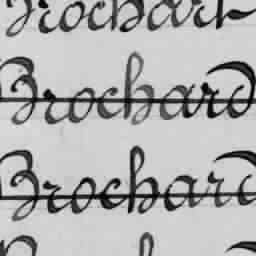 Brochard
Brochard
Brochard